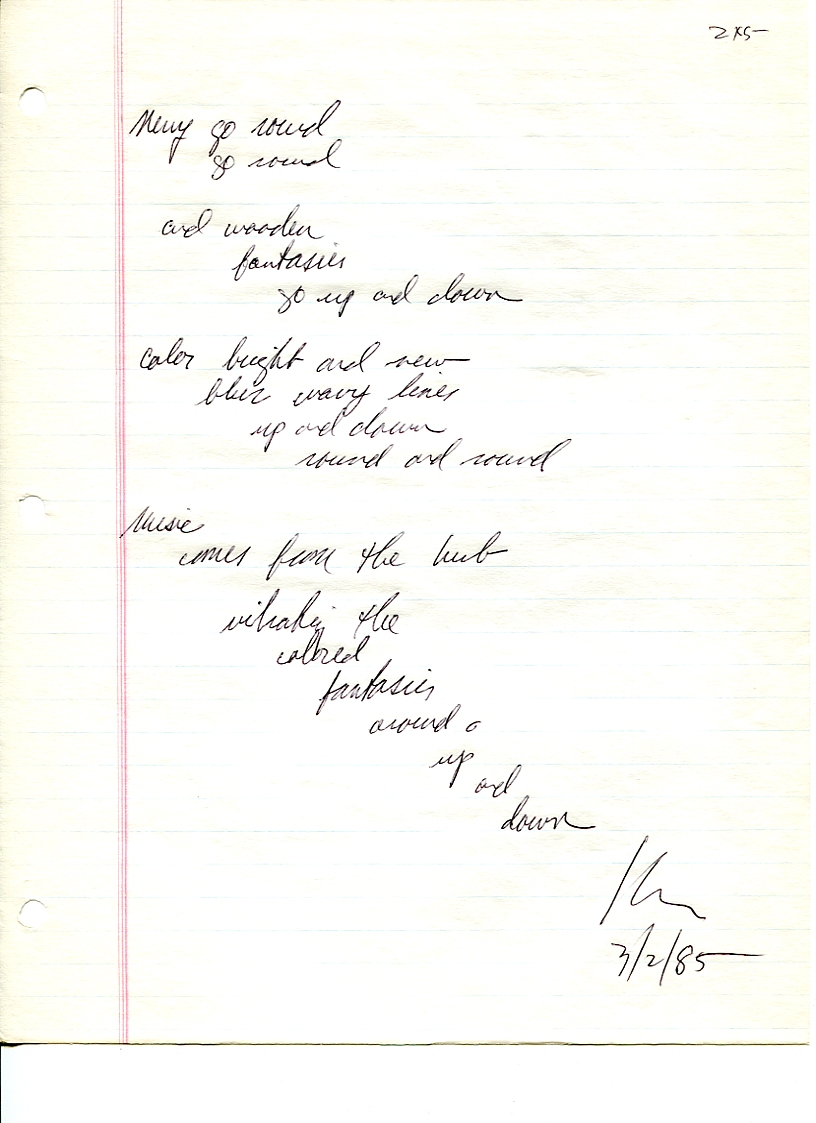 2x5
Merry go round
go round
and wooden
fantasies
go up and down
color bright and new
blur wavy lines
up and down
round and round
Music
comes from the hub
vibrating the
colored
fantasies
around
up
and
down
3/2/85